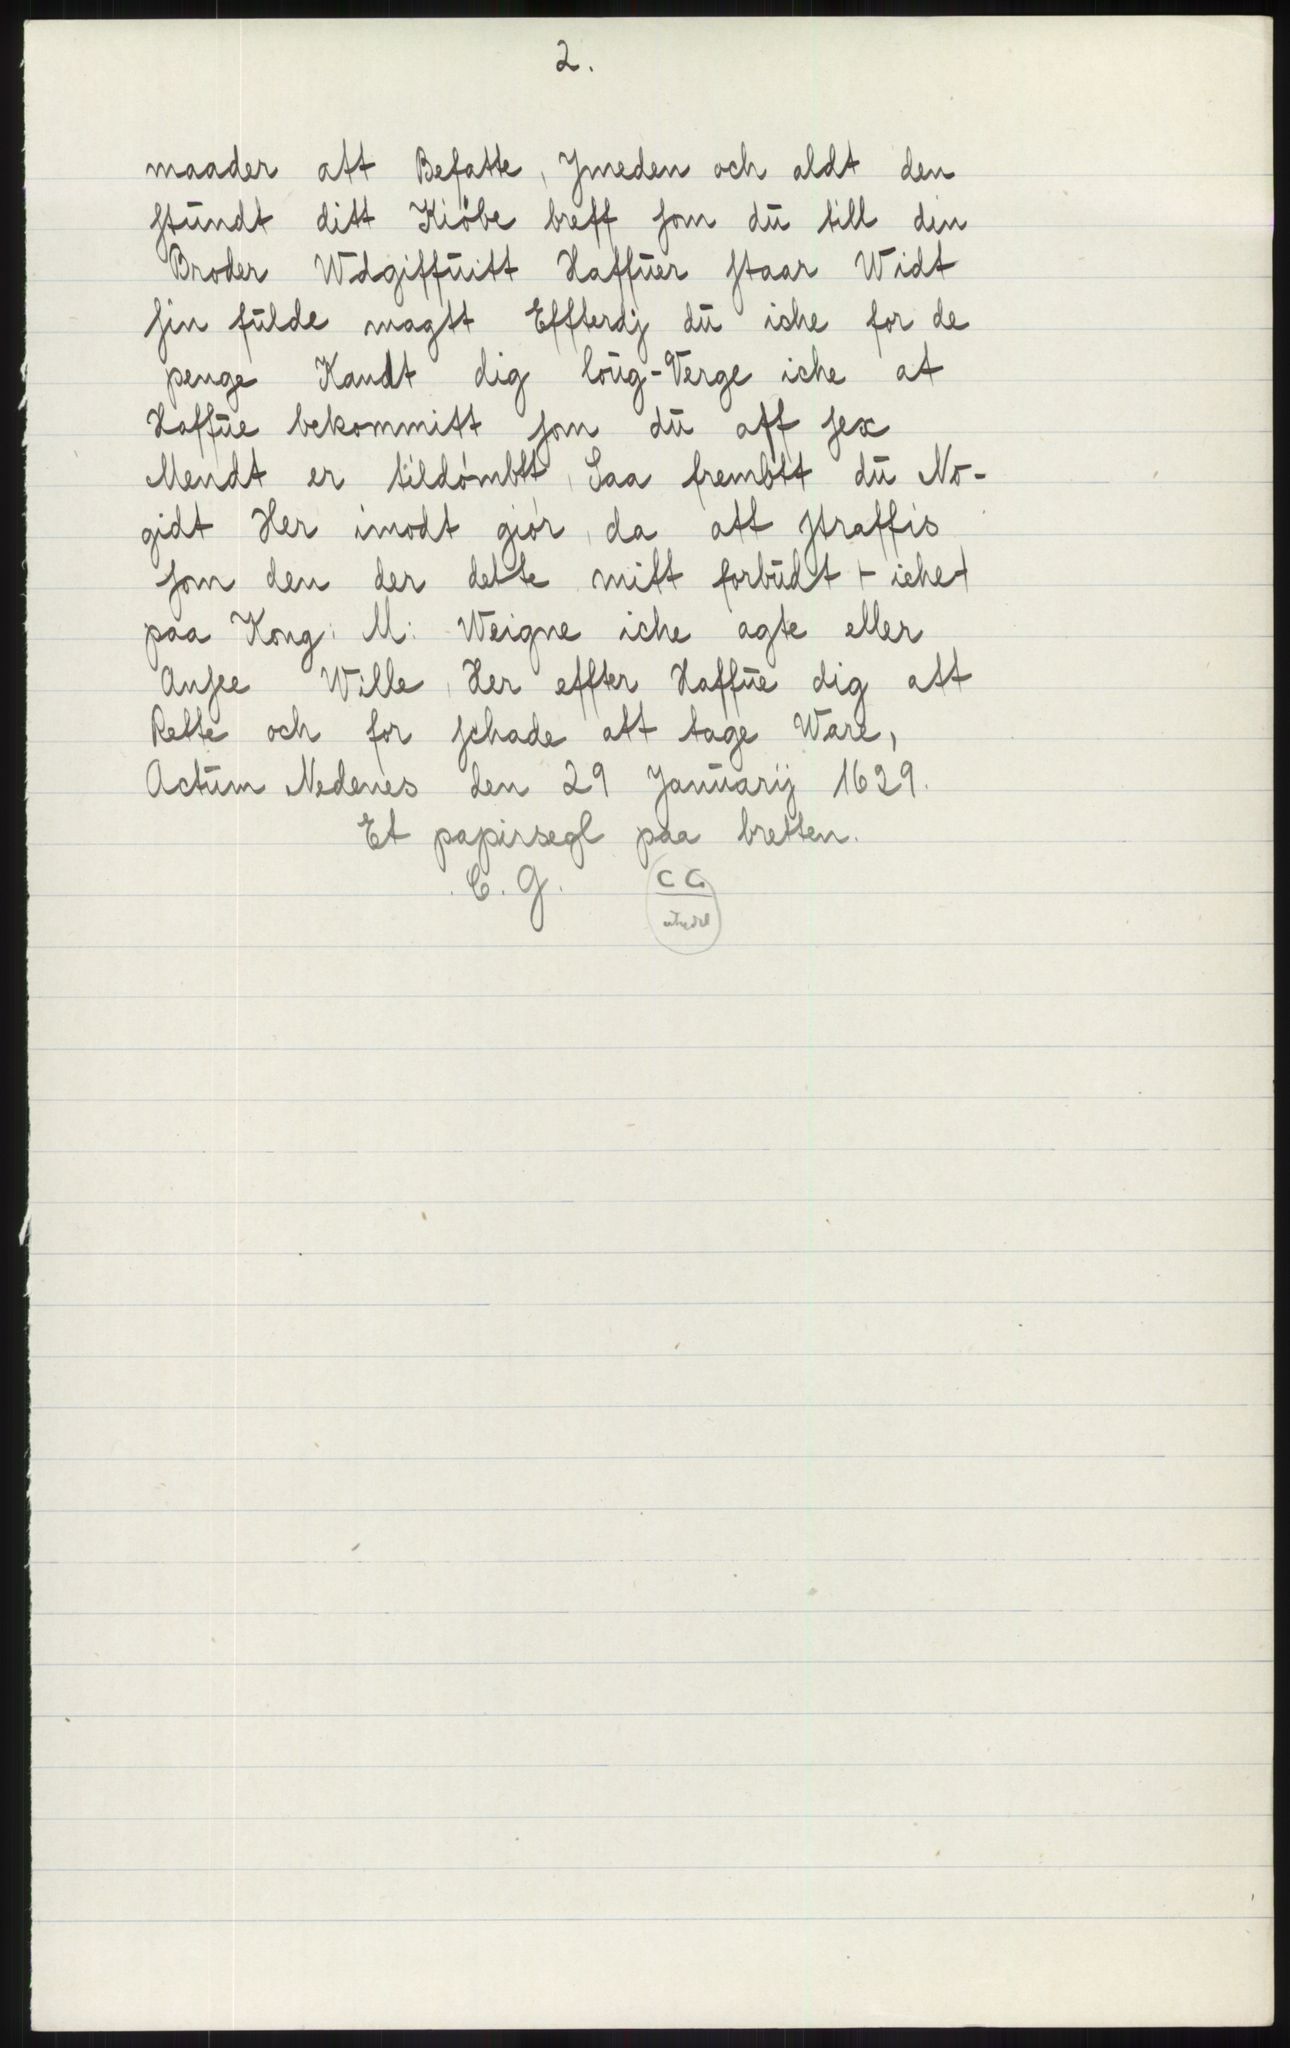 2.
maader att Befatte, Jmeden och aldt den
stundt ditt Kiöbe breff som du till din
Broder Wdgiffuitt Haffuer staar Widt
sin fulde magtt Effterdj du iche for de
penge Kandt dig loug-Verge iche at
Haffue bekommitt som du aff sex
Mendt er tildömbtt, Saa frembtt du No-
gidt Her imodt giör, da att straffis
som den der dette mitt forbudt + iche +
paa Kong: M: Weigne iche agte eller
Ansee Wille, Her effter Haffue dig att
Rette och for schade att tage Ware,
Actum Nedenes den 29 Januarij 1629.
Et papirsegl paa bretten.
C. G. C G